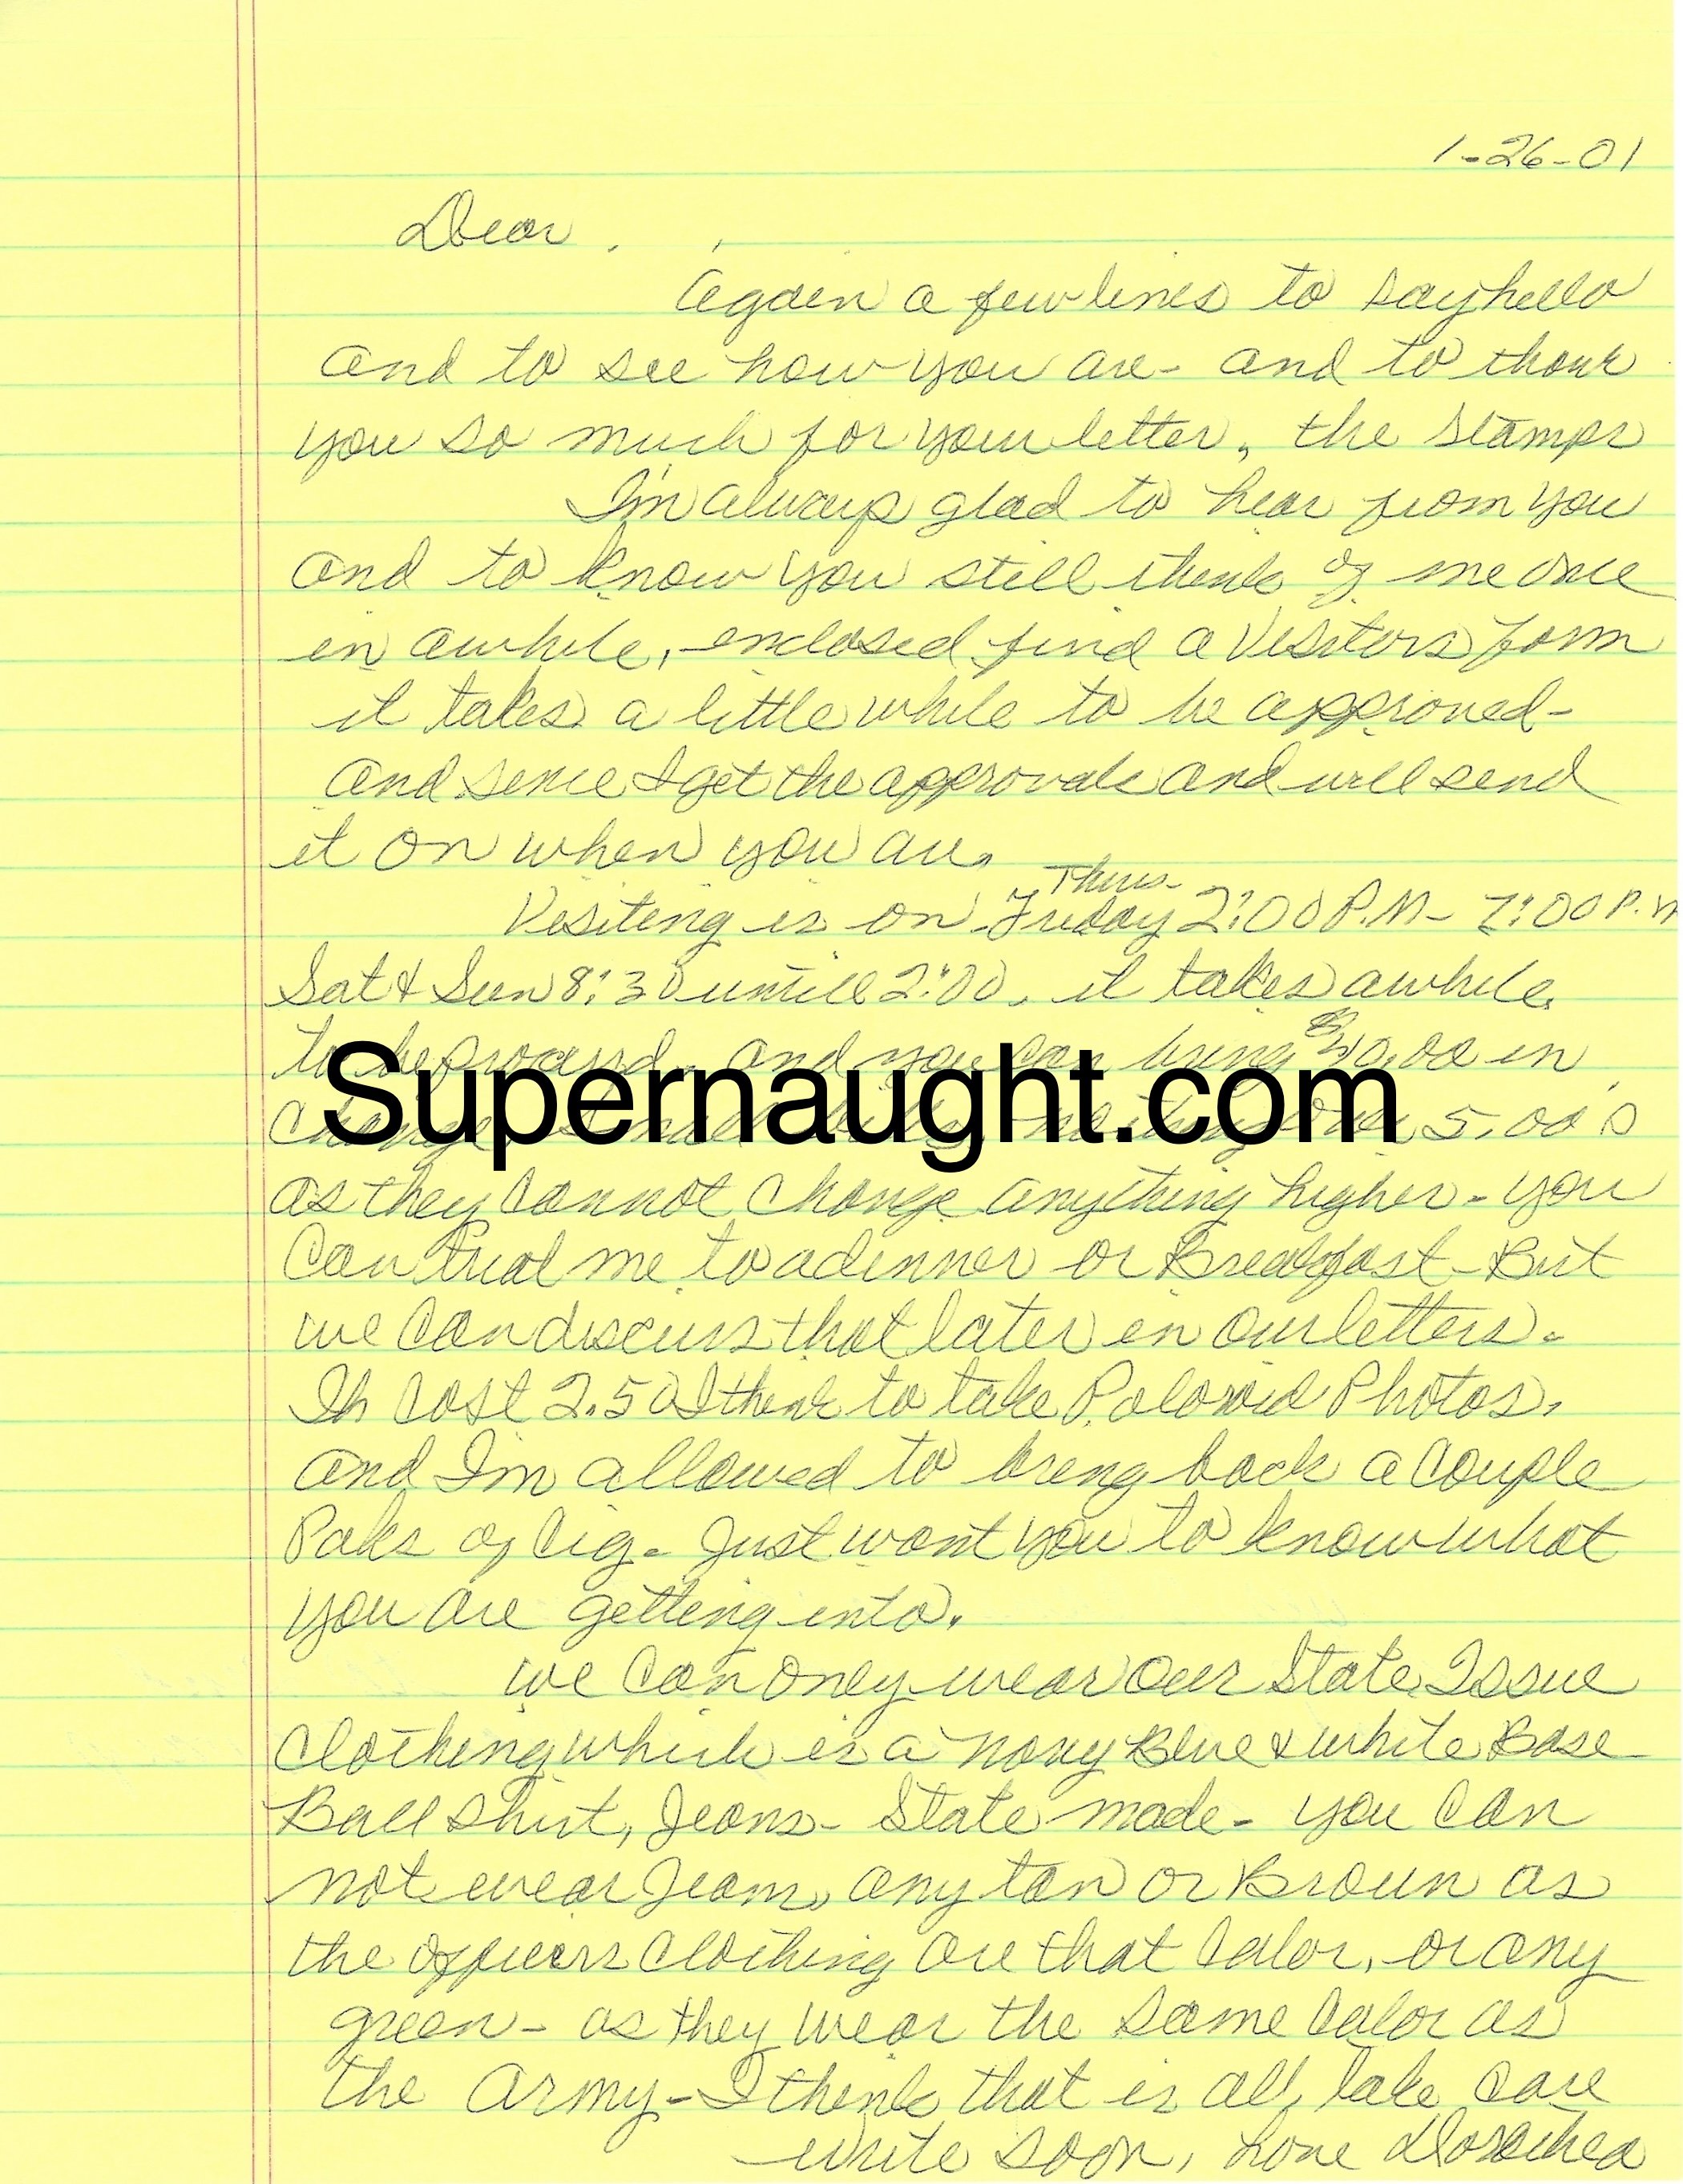 1-26-01
Dear
Again a few lines to say hello
and to see how you are - and to thank
you so much for your letter, the stamps
I'm always glad to hear from you
and to know you still think of me once
in awhile, enclosed find a Visitors form
it takes a little while to be approved -
and sence I get the approvals and will send
it on when you are.
Thurs -
Visiting is on Friday 2:00 P.M - 7:00 P.M
Sat & Sun 8:30 untill 2:00. it takes awhile.
to be and you can bring in
Supernaught.com
5.00's
as they cannot change anything higher - you
Can treat me to a dinner or Breakfast - But
we can discuss that later in our letters.
It cost 2.50 I think to take Poloroid Photos,
and I'm allowed to bring back a couple
Paks of Cig - Just want you to know what
you are getting into.
we can only wear our State Issue
Clothing which is a navy Blue & white Base
Ball shirt, Jeans - State made - you can
not wear Jeans, any tan or Brown as
the officers clothing are that Color, or any
green - as they wear the same Color as
the Army - I think that is all, take care
write soon, Love Dorothea